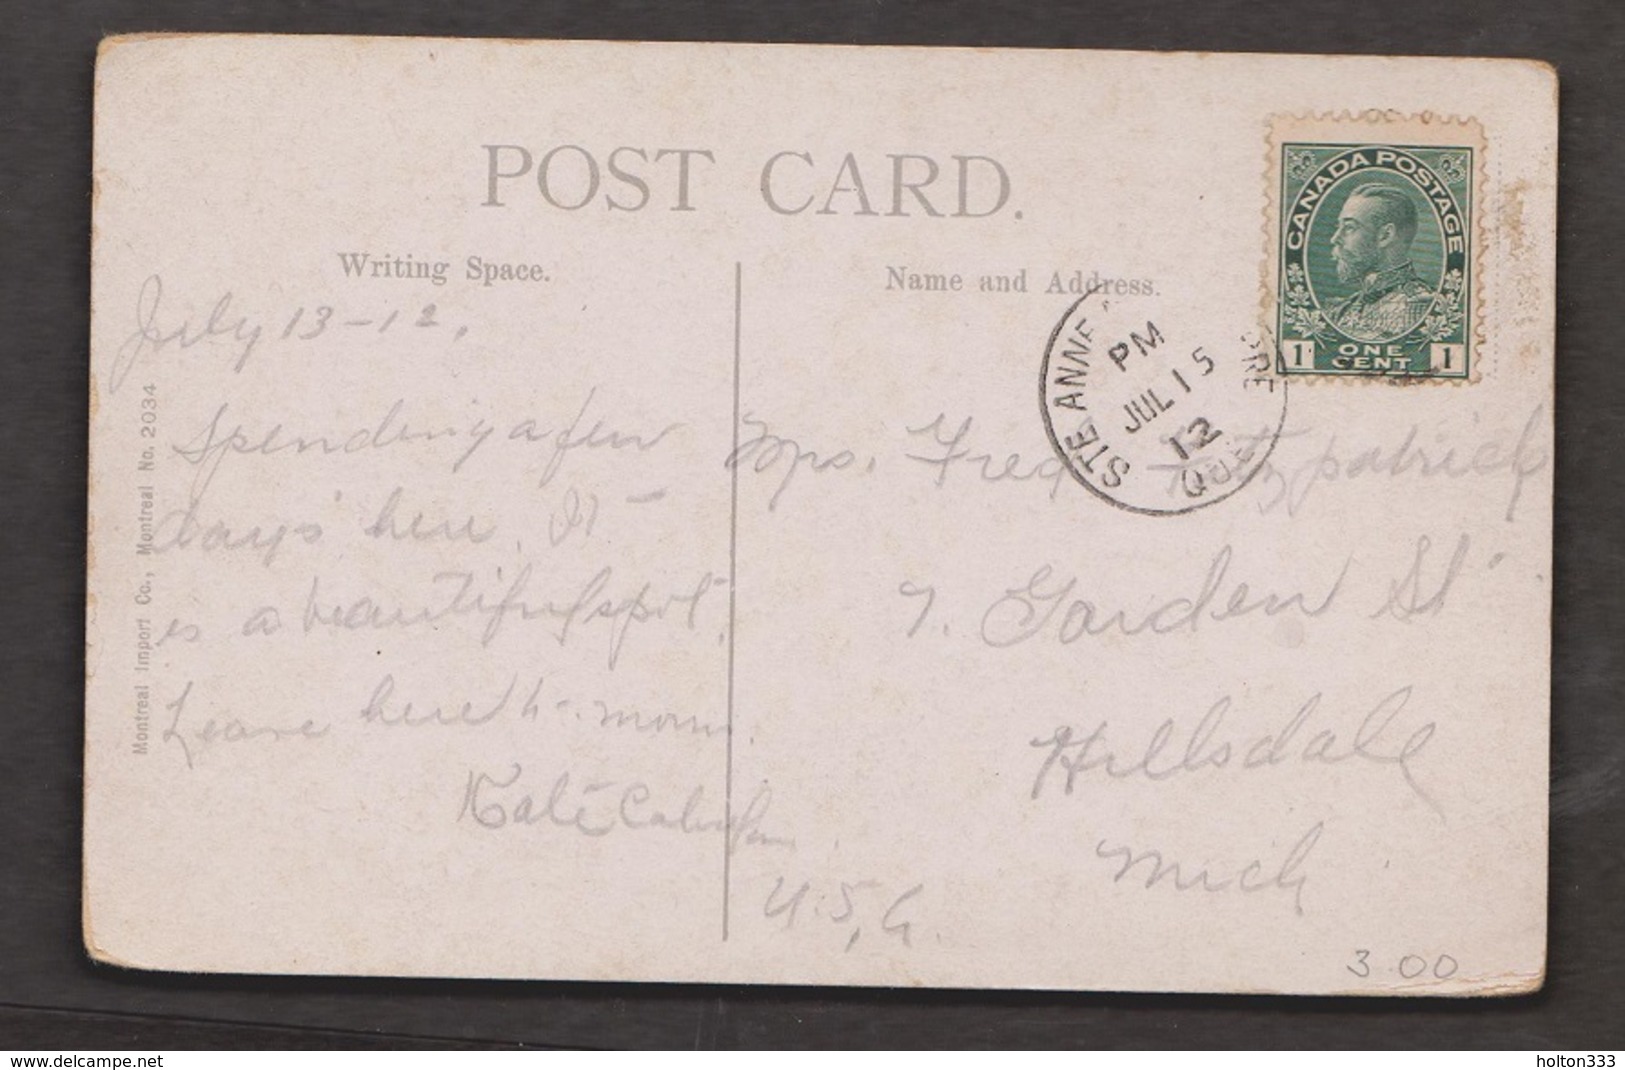 POST CARD.
Writing Space.
Name and Address.
CANADA POSTAGE
1 ONE CENT 1
STE ANNE
PM
JUL 15
12
QUE
July 13-12.
Spending a few
days here. It
is a beautiful spot.
Leave here
Kate
Mrs. Fred Fitzpatrick
7. Garden St
Hillsdale
Mich
U.S.A.
Montreal Import Co., Montreal No. 2034
3.00
www.delcampe.net
holton333